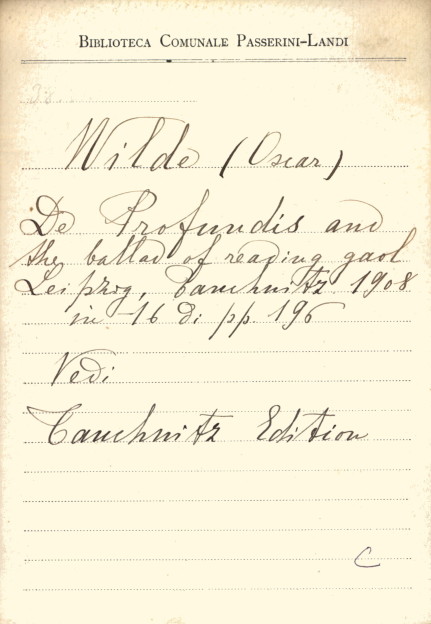 BIBLIOTECA COMUNALE PASSERINI-LANDI
Wilde (Oscar)
De Profundis and
the ballad of reading gaol
Leipzig, Tauchnitz 1908
in 16 di pp. 196
Vedi
Tauchnitz Edition
C